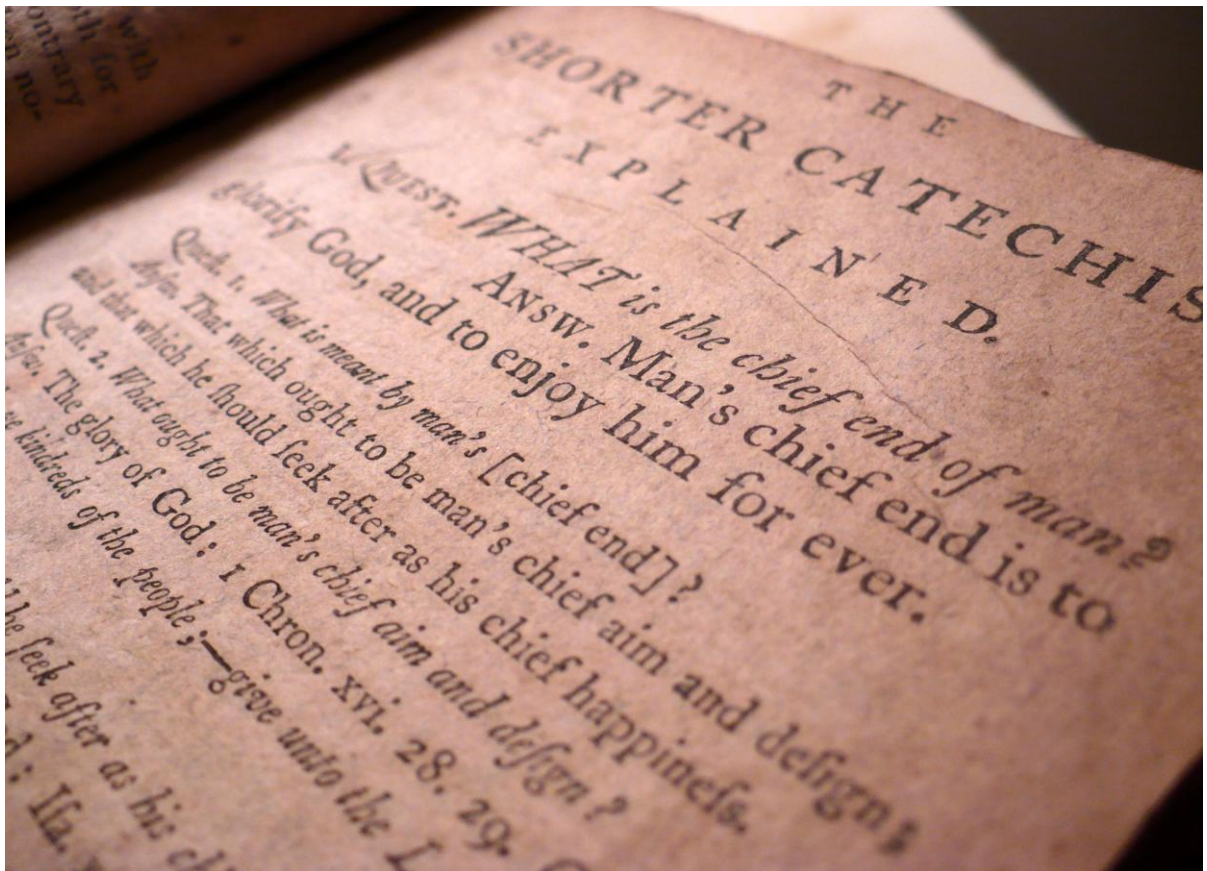 with
for
ontrary
no-
THE
SHORTER CATECHIS
EXPLAINED.
1. QUEST. WHAT is the chief end of man?
ANSW. Man's chief end is to
glorify God, and to enjoy him for ever.
Queſt. 1. What is meant by man's [chief end]?
Anſw. That which ought to be man's chief aim and deſign;
and that which he ſhould ſeek after as his chief happineſs.
Queſt. 2. What ought to be man's chief aim and deſign?
Anſw. The glory of God: 1 Chron. xvi. 28. 29.
kindreds of the people;—give unto the L
he ſeek after as his ch
d: Iſa.